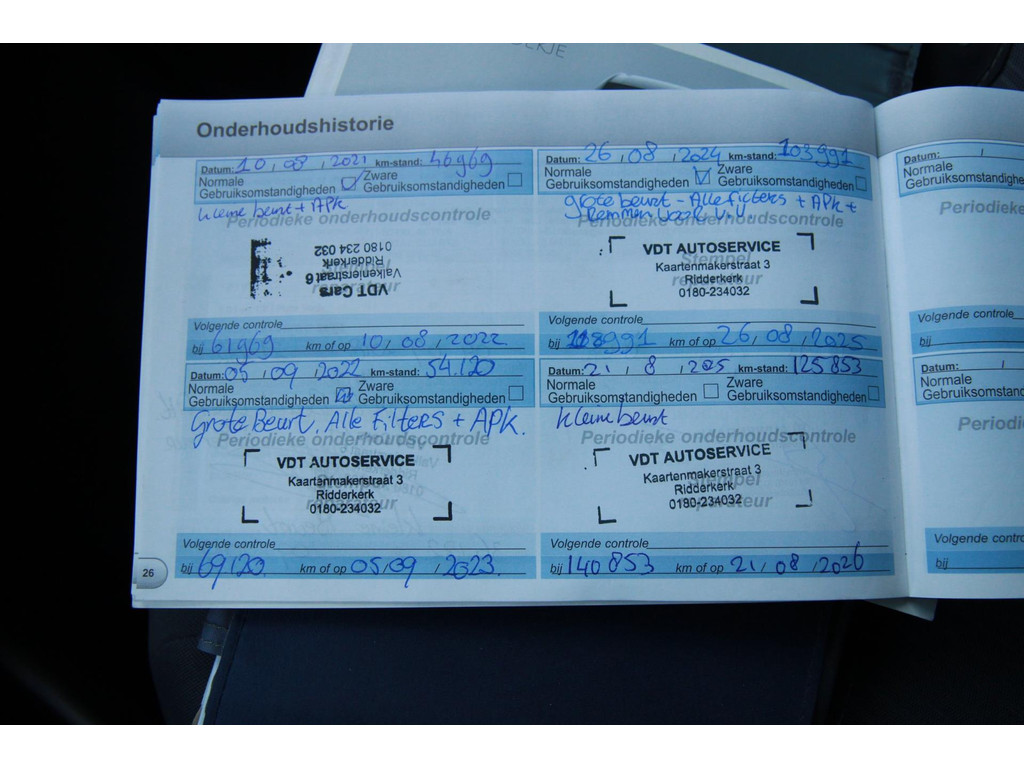 EKJE
Onderhoudshistorie
Datum: 10 , 08 , 2021 km-stand: 46969
Normale Gebruiksomstandigheden
Zware Gebruiksomstandigheden
kleine beurt + APK
Periodieke onderhoudscontrole
VDT Cars
Valkenierstraat 6
Ridderkerk
0180 234 032
Volgende controle
bij 61969 km of op 10 , 08 , 2022
Datum: 05 , 09 , 2022 km-stand: 54.120
Normale Gebruiksomstandigheden
Zware Gebruiksomstandigheden
Grote Beurt. Alle Filters + APK.
Periodieke onderhoudscontrole
VDT AUTOSERVICE
Kaartenmakerstraat 3
Ridderkerk
0180-234032
Volgende controle
bij 69120. km of op 05/09 , 2023.
26
Datum: 26 , 08 , 2024 km-stand: 103991
Normale Gebruiksomstandigheden
Zware Gebruiksomstandigheden
grote beurt - Alle Filters + APK +
Remmen
Periodieke onderhoudscontrole
Stempel reparateur
VDT AUTOSERVICE
Kaartenmakerstraat 3
Ridderkerk
0180-234032
Volgende controle
bij 118991 km of op 26 , 08 , 2025
Datum: 21 , 8 , 2025 km-stand: 125853
Normale Gebruiksomstandigheden
Zware Gebruiksomstandigheden
kleine beurt
Periodieke onderhoudscontrole
Stempel reparateur
VDT AUTOSERVICE
Kaartenmakerstraat 3
Ridderkerk
0180-234032
Volgende controle
bij 140853 km of op 21 , 08 , 2026
Datum: /
Normale
Gebruiksomstandighed
Periodieke
Volgende controle
bij
Datum: /
Normale
Gebruiksomstandighed
Periodi
Volgende controle
bij